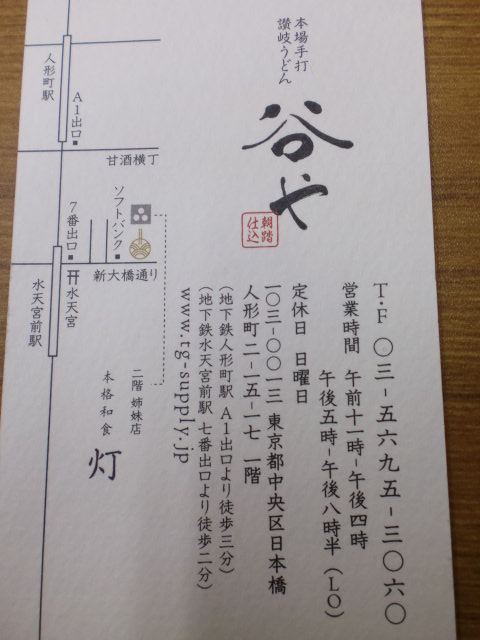 本場手打
讃岐うどん
谷や
朝踏
仕込
T・F 〇三-五六九五-三〇六〇
営業時間 午前十一時-午後四時
午後五時-午後八時半（LO）
定休日 日曜日
一〇三-〇〇一三 東京都中央区日本橋
人形町二-一五-一七 一階
（地下鉄人形町駅 A1出口より徒歩三分）
（地下鉄水天宮前駅 七番出口より徒歩二分）
www.tg-supply.jp
人形町駅
A1出口
甘酒横丁
ソフトバンク
7番出口
新大橋通り
水天宮
水天宮前駅
二階 姉妹店
本格和食
灯